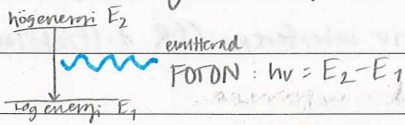 högenergi E₂
emitterad
FOTON : hν = E₂-E₁
låg energi E₁